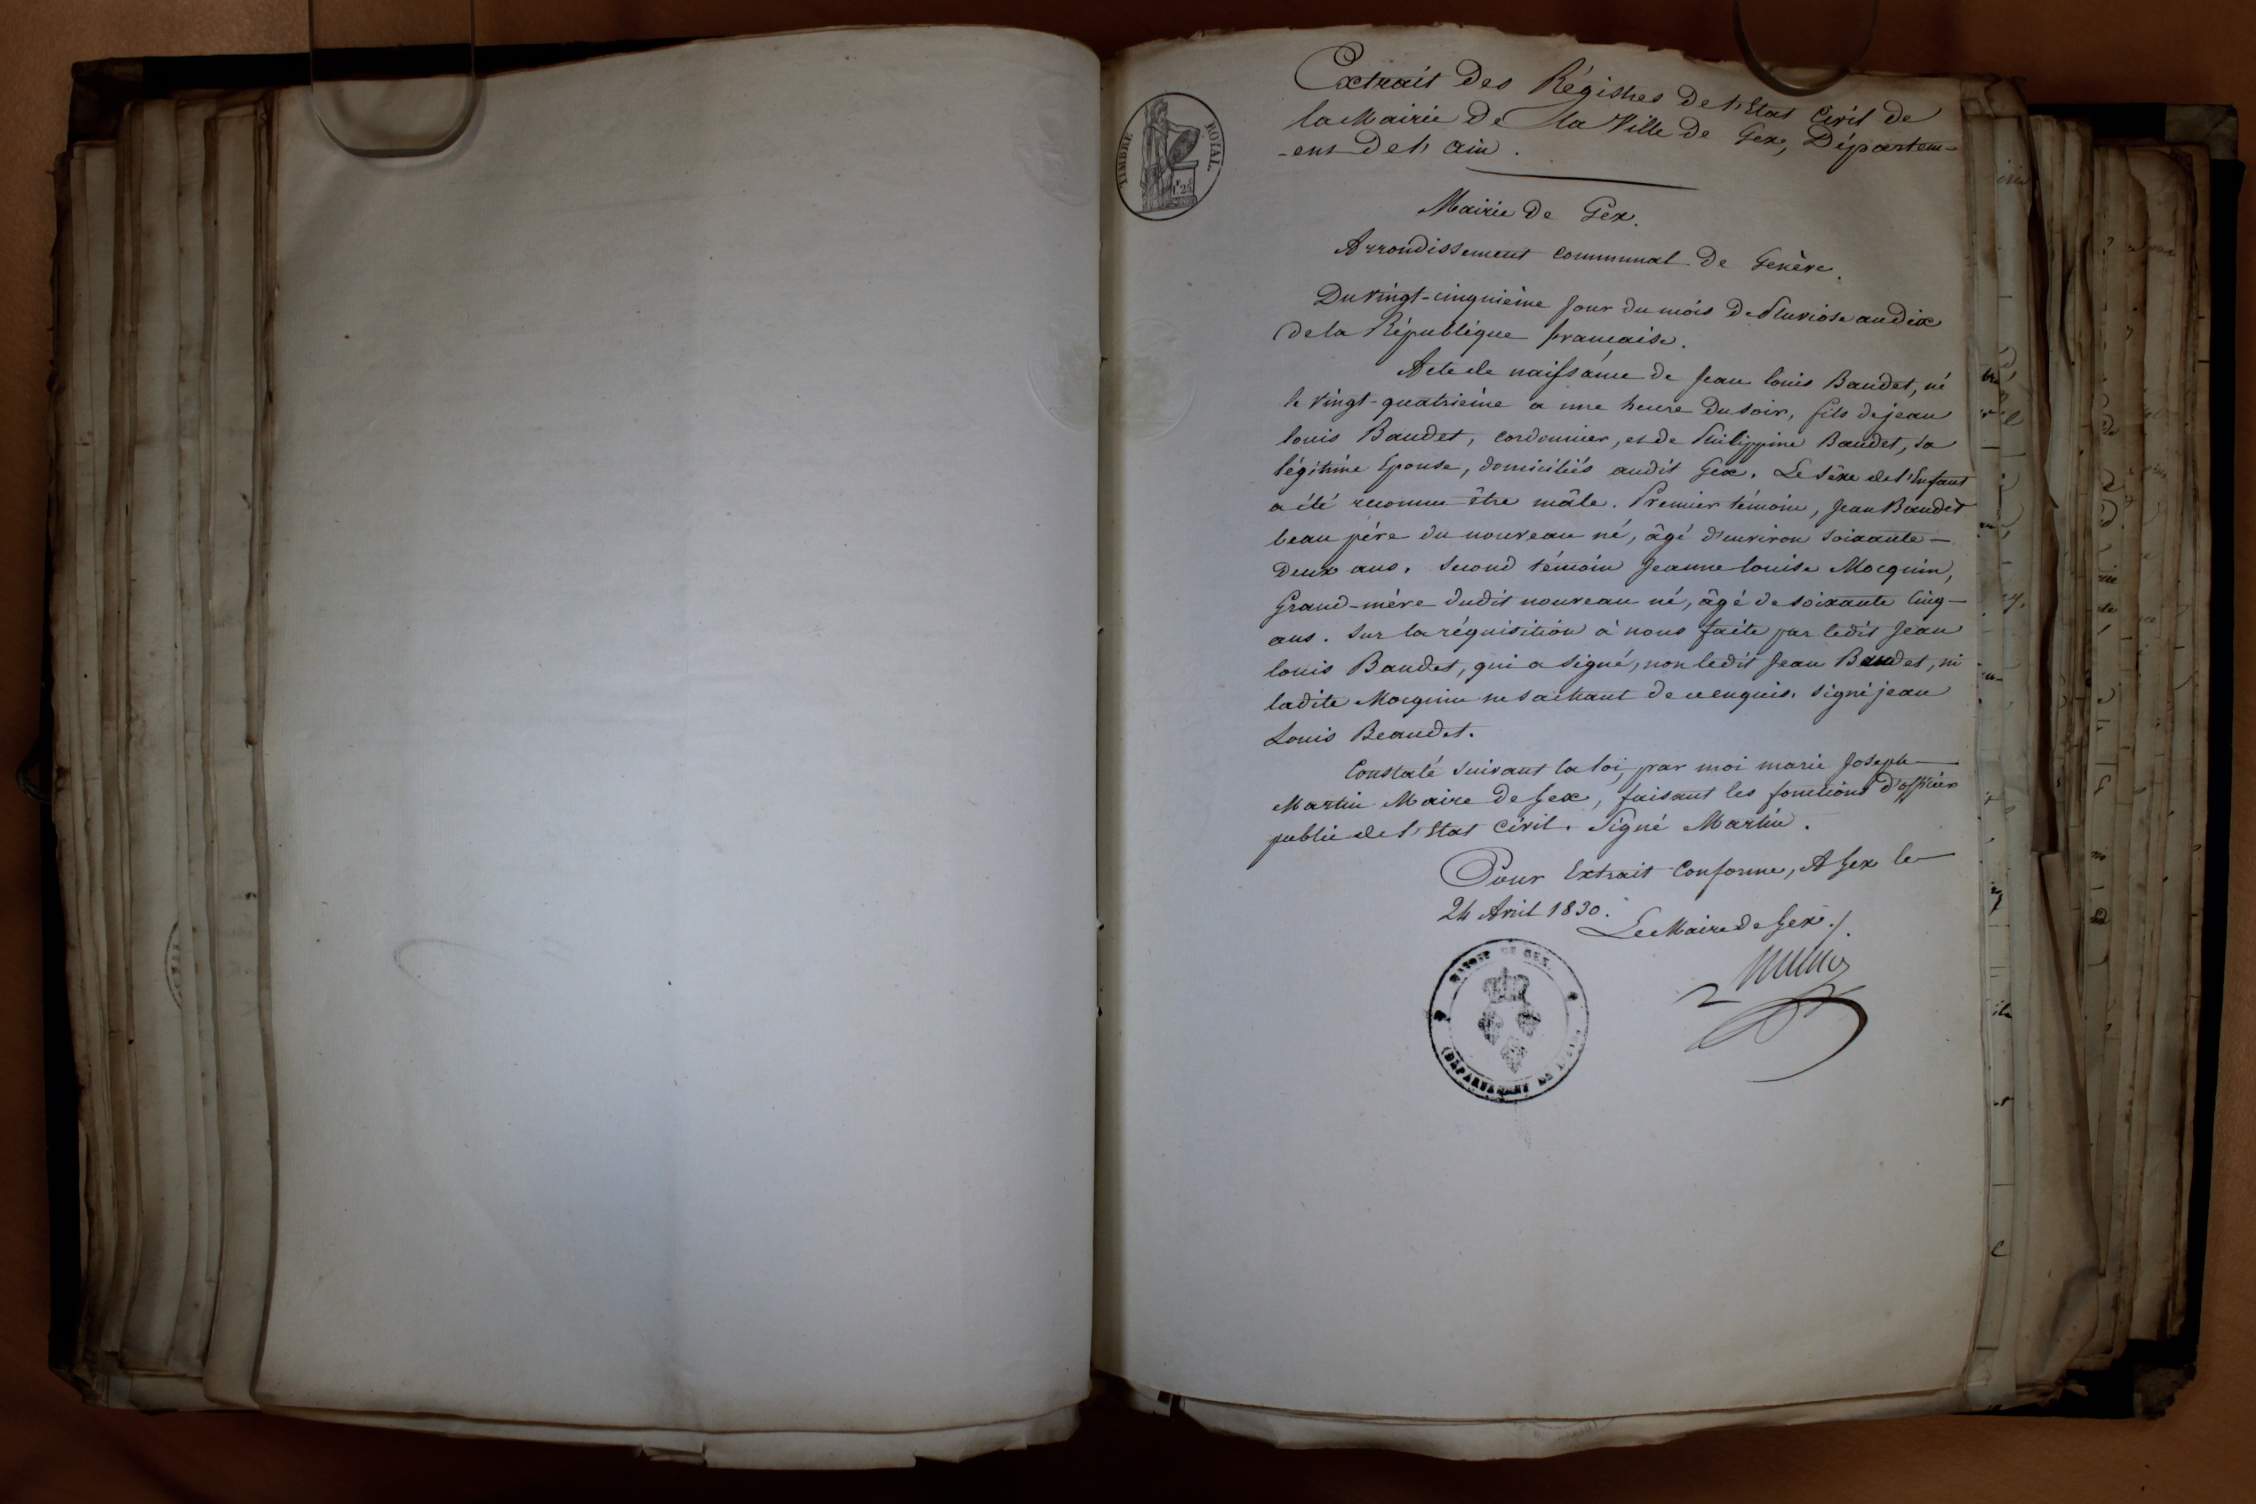 TIMBRE ROYAL
1.F 25
Extrait des Régistres de l'Etat Civil de
la Mairie de la Ville de Gex, Départem-
-ent de l'ain.
Mairie de Gex.
Arrondissement communal de Genève.
Du vingt-cinquième jour du mois de Pluviose an dix
de la République française.
Acte de naissance de Jean louis Baudet, né
le vingt-quatrième a une heure du soir, fils de jean
louis Baudet, cordonnier, et de Philippine Baudet, sa
légitime Epouse, domiciliés audit Gex. Le sèxe de l'Enfant
a été reconnu être mâle. Premier témoin, Jean Baudet
beau père du nouveau né, âgé d'environ soixante-
Deux ans. Second témoin Jeanne louise Mocquin,
Grand-mère dudit nouveau né, âgé de soixante Cinq-
ans. Sur la réquisition à nous faite par ledit Jean
louis Baudet, qui a signé, non ledit Jean Baudet, ni
ladite Mocquin ne sachant de ce enquis. Signé jean
Louis Beaudet.
Constaté suivant la loi, par moi marie Joseph
Martin Maire de Gex, faisant les fonctions d'officier
public de l'Etat Civil. Signé Martin.
Pour Extrait Conforme, A Gex le
24 Avril 1830.
Le Maire de Gex.
MAIRIE DE GEX.
DÉPARTEMENT DE L'AIN